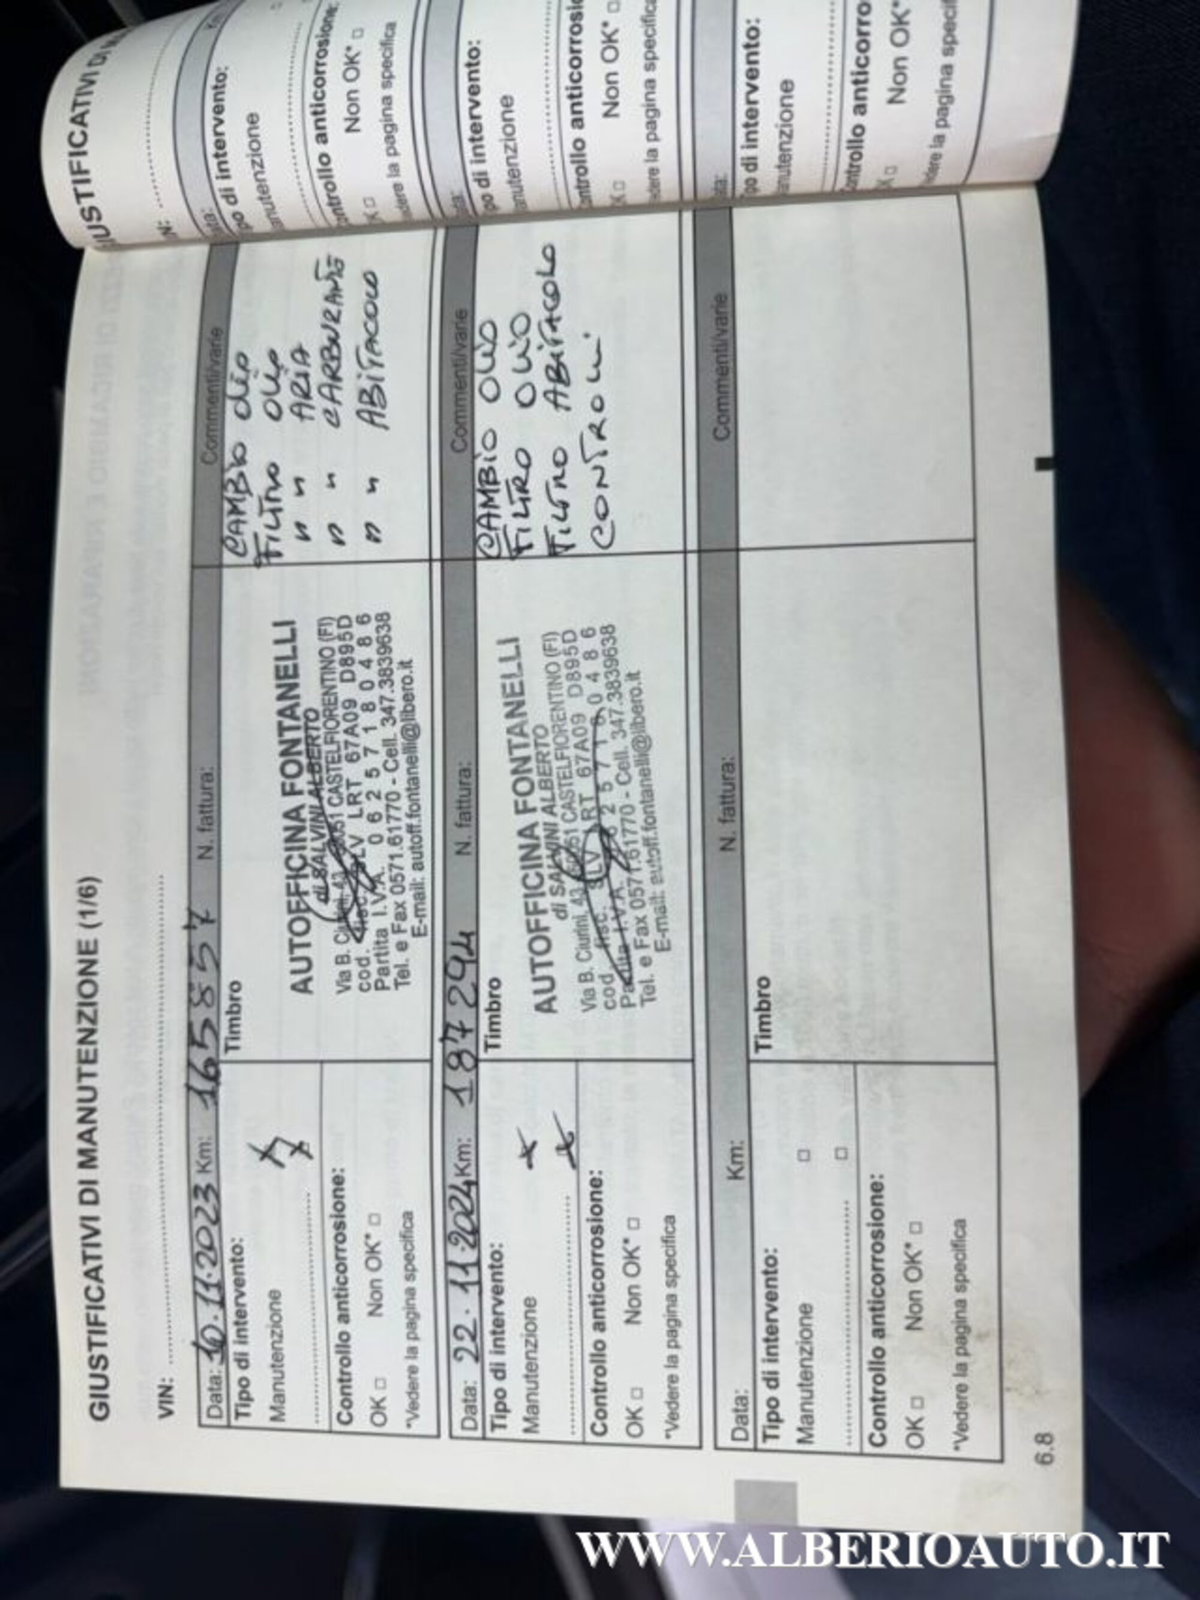 GIUSTIFICATIVI DI MANUTENZIONE (1/6)
VIN:
Data: 10.11.2023 Km: 165857 N. fattura: Commenti/varie
Tipo di intervento:
Manutenzione
Controllo anticorrosione:
OK □ Non OK* □
*Vedere la pagina specifica
Timbro
AUTOFFICINA FONTANELLI
di SALVINI ALBERTO
Via B. Ciurini, 43 50051 CASTELFIORENTINO (FI)
cod. fisc. SLV LRT 67A09 D895D
Partita I.V.A. 06257180486
Tel. e Fax 0571.61770 - Cell. 347.3839638
E-mail: autoff.fontanelli@libero.it
CAMBIO OLIO
FILTRO OLIO
" " ARIA
" " CARBURANTE
" " ABITACOLO
Data: 22.11.2024 Km: 187294 N. fattura: Commenti/varie
Tipo di intervento:
Manutenzione
Controllo anticorrosione:
OK □ Non OK* □
*Vedere la pagina specifica
Timbro
AUTOFFICINA FONTANELLI
di SALVINI ALBERTO
Via B. Ciurini, 43 50051 CASTELFIORENTINO (FI)
cod. fisc. SLV LRT 67A09 D895D
Partita I.V.A. 06257180486
Tel. e Fax 0571.61770 - Cell. 347.3839638
E-mail: autoff.fontanelli@libero.it
CAMBIO OLIO
FILTRO OLIO
FILTRO ABITACOLO
CONTROLLI
Data: Km: N. fattura: Commenti/varie
Tipo di intervento:
Manutenzione □
□
Controllo anticorrosione:
OK □ Non OK* □
*Vedere la pagina specifica
Timbro
6.8
GIUSTIFICATIVI DI
po di intervento:
anutenzione
ontrollo anticorrosione:
Non OK* □
edere la pagina specifica
po di intervento:
anutenzione
ontrollo anticorrosio
Non OK* □
edere la pagina specifica
po di intervento:
anutenzione
ontrollo anticorro
Non OK*
edere la pagina specif
WWW.ALBERIOAUTO.IT